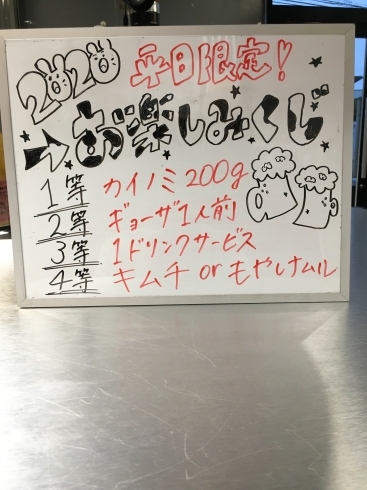 2020 平日限定!
→お楽しみくじ
1等 カイノミ 200g
2等 ギョーザ1人前
3等 1ドリンクサービス
4等 キムチ or もやしナムル